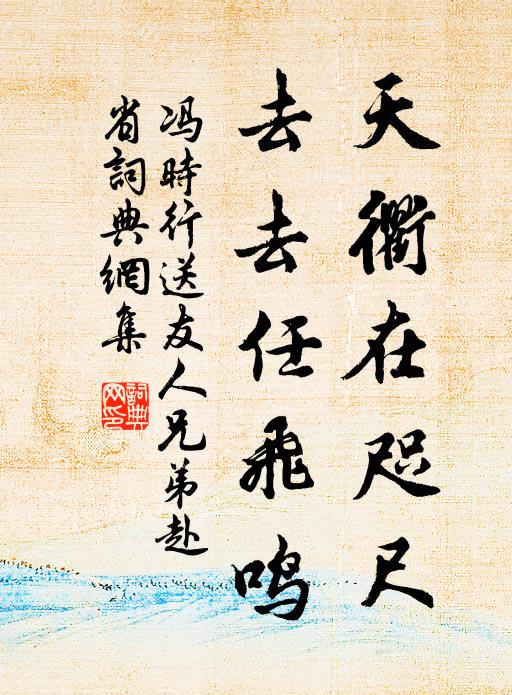 天衢在咫尺
去去任飛鳴
冯時行送友人兄弟赴
省詞典網集
詞典
网印